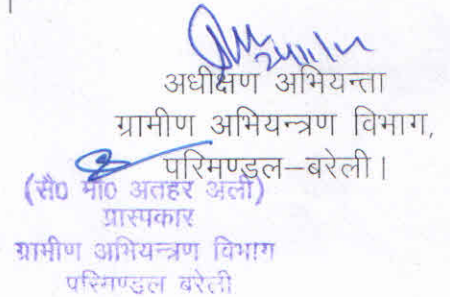 अधीक्षण अभियन्ता
ग्रामीण अभियन्त्रण विभाग,
परिमण्डल–बरेली।
(सै0 मो0 अतहर अली)
प्रारूपकार
ग्रामीण अभियन्त्रण विभाग
परिमण्डल बरेली